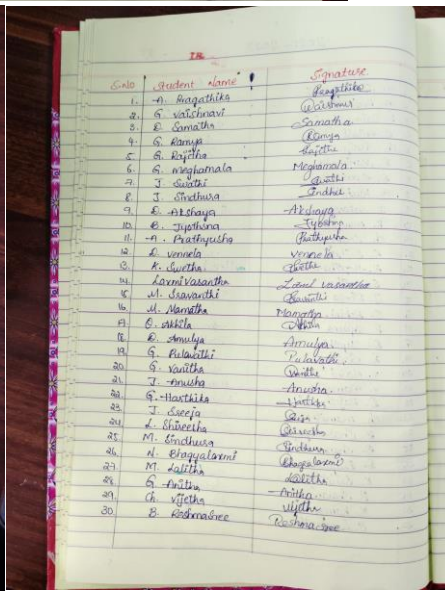 S.No Student Name Signature
1. A. Pragathika Pragathika
2. G. Vaishnavi Vaishnavi
3. D. Samatha Samatha
4. G. Ramya Ramya
5. G. Rajitha Rajitha
6. G. Meghamala Meghamala
7. J. Swathi Swathi
8. J. Sindhura Sindhu
9. D. Akshaya Akshaya
10. B. Jyothsna
11. A. Prathyusha Prathyusha
12. D. vennela vennela
13. K. Swetha Swetha
14. Laxmi Vasantha Laxmi vasantha
15. M. Sravanthi Sravanthi
16. M. Mamatha Mamatha
17. Akhila Akhila
18. D. Amulya Amulya
19. G. Pulavathi Pulavathi
20. G. Vanitha Vanitha
21. J. Anusha Anusha
22. G. Harthika Harthika
23. J. Sreeja
24. L. Shireesha
25. M. Sindhura Sindhura
26. N. Bhagyalaxmi Bhagyalaxmi
27. M. Lalitha Lalitha
28. G. Anitha Anitha
29. Ch. Vijetha Vijetha
30. B. ReshmaSree Reshma Sree